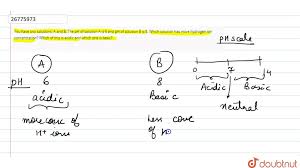 26775973
You have two solutions, A and B. The pH of solution A is 6 and pH of solution B is 8. Which solution has more hydrogen ion
concentration? Which of this is acidic and which one is basic?
pH scale
A
B
0
7
14
pH
6
8
Acidic
Basic
acidic
Basic
neutral
more conc of
H+ ions
less conc
of H
doubtnut